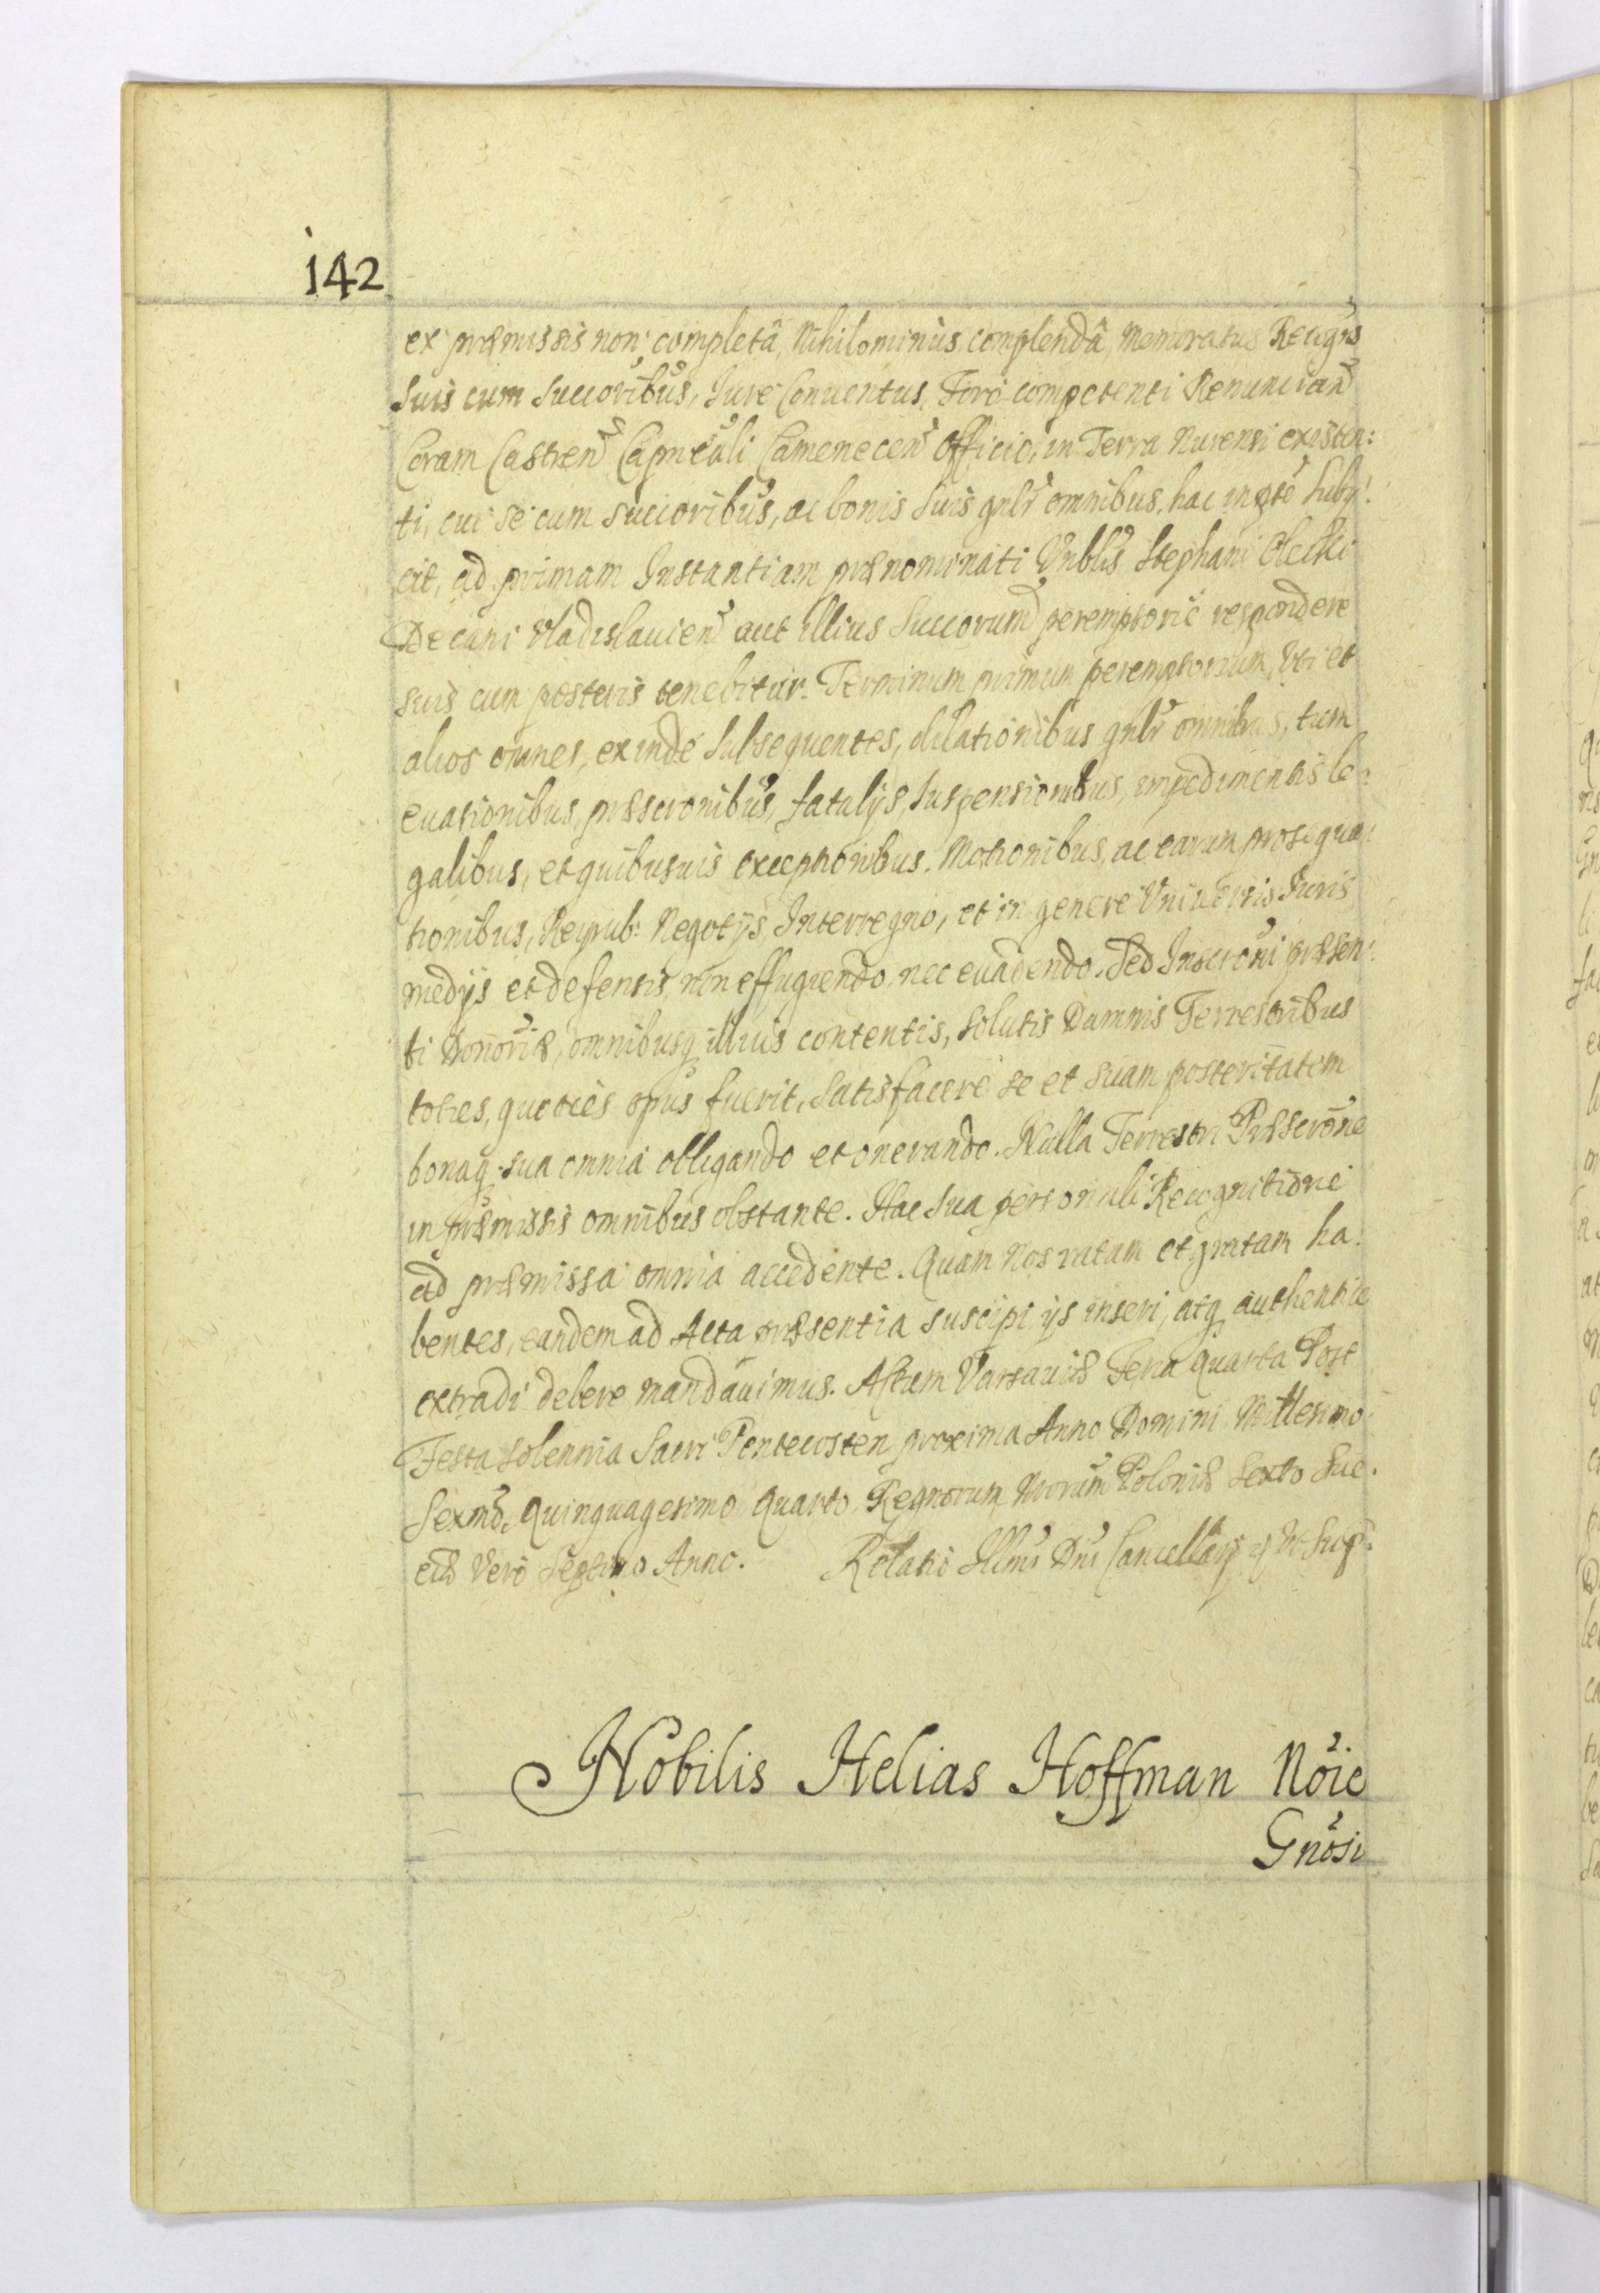 142
ex præmissis non completâ, Nihilominus complendâ, memoratus Recogñs
Suis cum Succoribus, Jure Conuentus, Foro competenti Renuncian̄
Coram Castren̄ Capitāli Camenecen̄ Officio, in Terra Nurensi existen:
ti, cui se cum succoribus, ac bonis suis gnlr̄ omnibus, hac in pte Subij:
cit, ad primam Instantiam prænominati Vnblis Stephani Olecki
Decani Vladislauien̄ aut illius Succorum peremptorie respondere
suis cum posteris tenebitur. Terminum primum peremptorium, Vti et
alios omnes, exinde Subsequentes, dilationibus gnlr̄ omnibus, tum
euasionibus, præscronibus, fatalijs, Suspensionibus, impedimentis le:
galibus, et quibusuis exceptionibus. Motionibus, ac earum prosequu:
tionibus, Reipub: Negotijs, Interregno, et in genere Vniuersis Iuris
medijs et defensis, non effugiendo, nec euadendo. Sed Inscrōni præsen:
ti Donōris, omnibusq illius contentis, solutis Damnis Terrestribus
toties, quoties opus fuerit, Satisfacere se et suam posteritatem
bonaq sua omnia obligando et onerando. Nulla Terrestri Præscrōne
in præmissis omnibus obstante. Hac Sua personali Recognitione
ad præmissa omnia accedente. Quam Nos ratam et gratam ha:
bentes, eandem ad Acta præsentia suscipi ijs inseri, atq authentice
extradi debere mandauimus. Actum Varsauiæ Feria Quarta Post
Festa Solennia Sacri Pentecosten proxima Anno Domini Millesimo
Sexmō Quinquagesimo Quarto Regnorum Nrorum Poloniæ Sexto Sue:
ciæ Vero Septimo Anno. Relatio Illmi Dni Cancellarij
Nobilis Helias Hoffman Nõie
Gnõsi